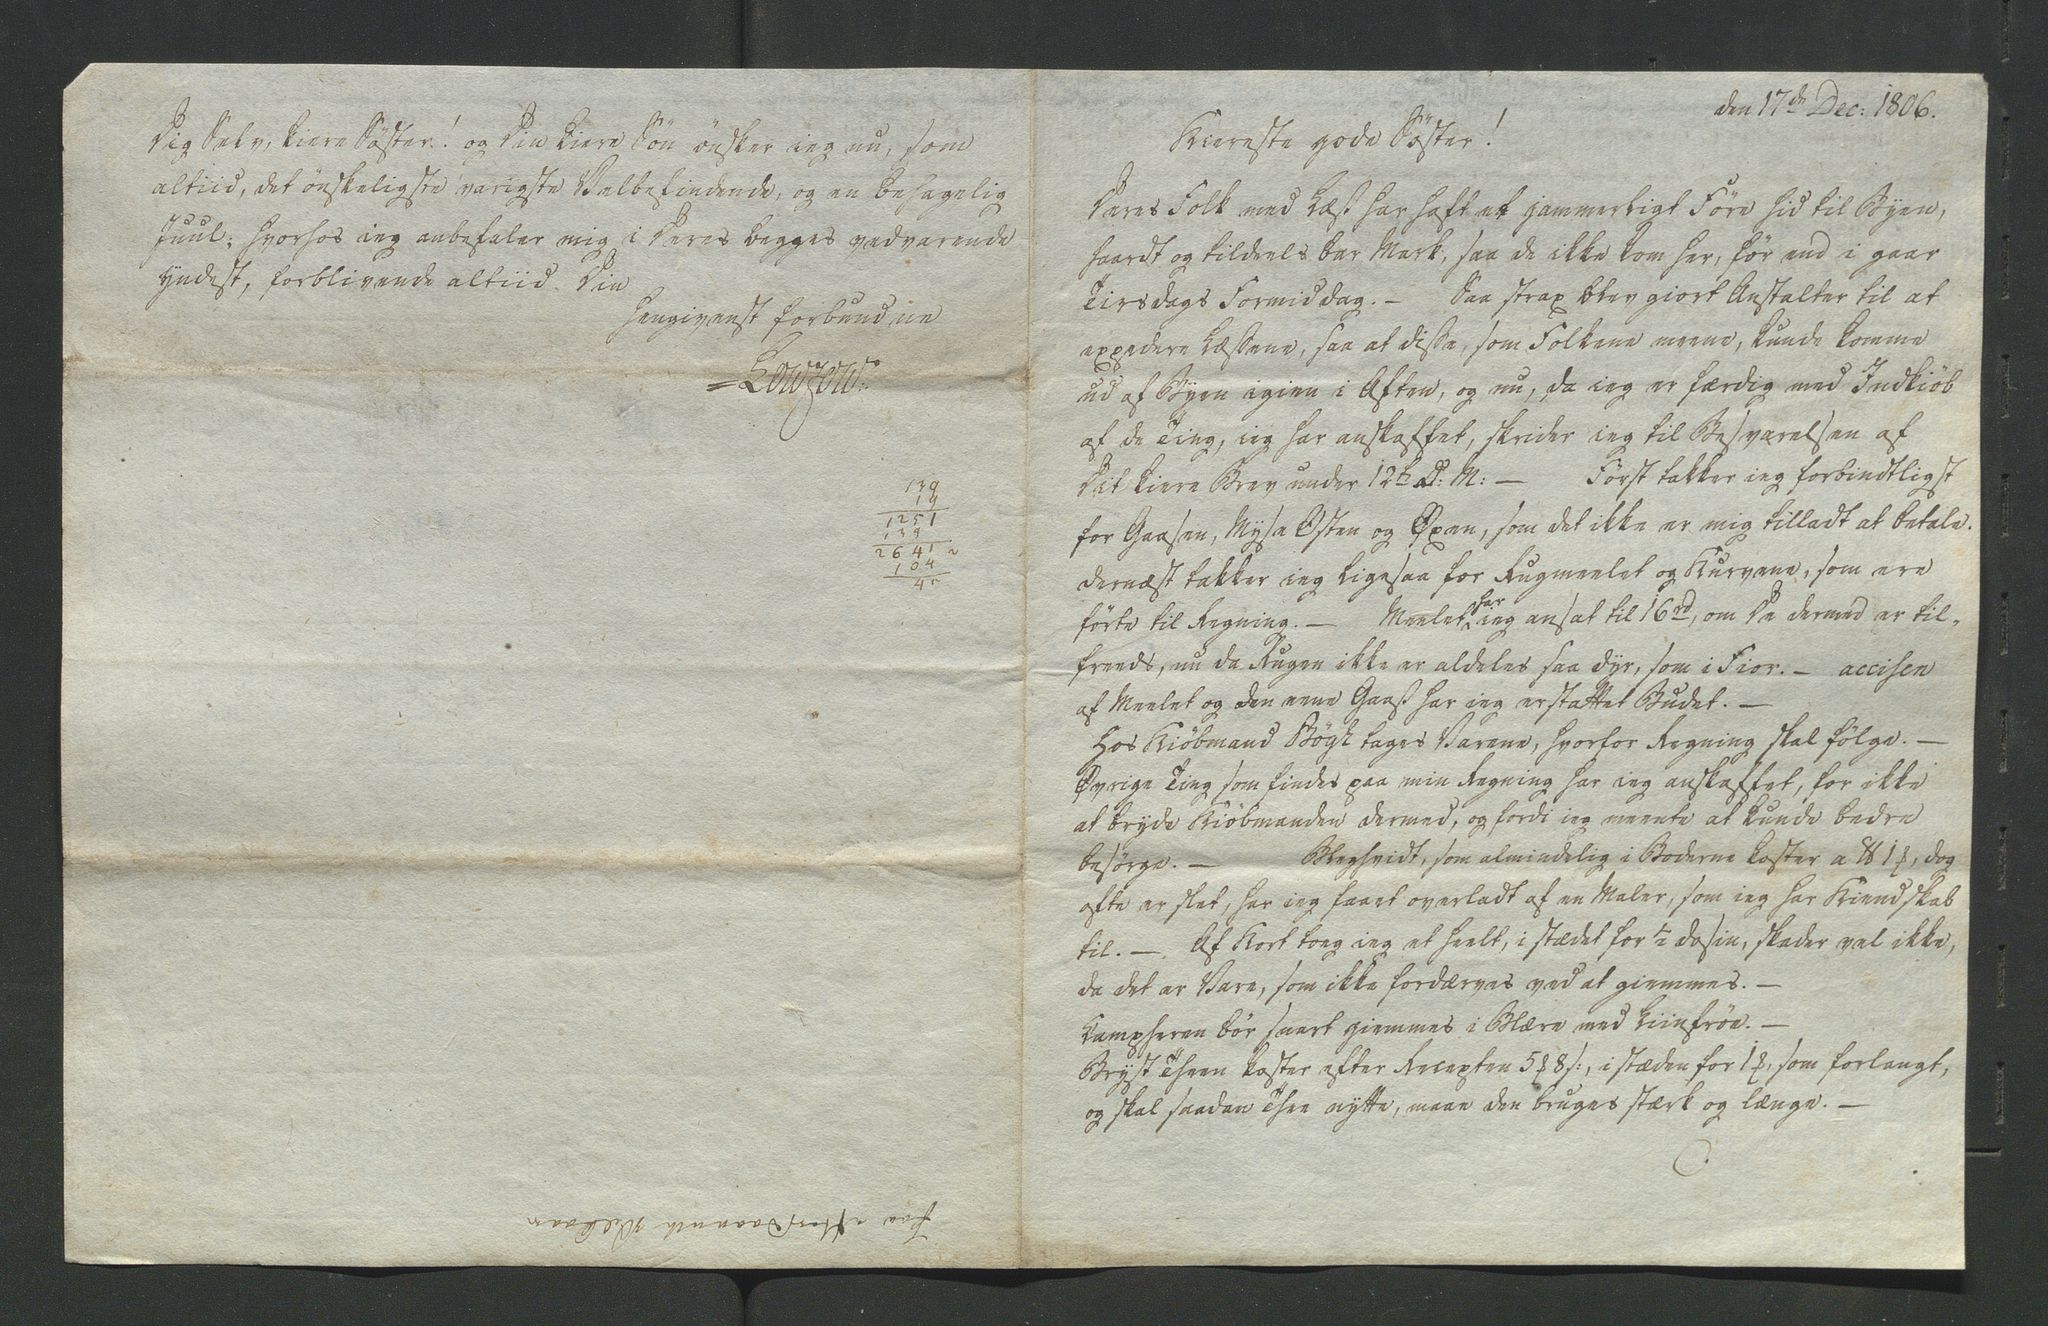 den 17de Dec: 1806.
Kiereste gode Söster!
Deres Folk med Læss har haft et jammerligt Före hid til Byen,
haardt og tildeels bar Mark, saa de ikke kom her, før end i gaar
Tirsdags Formiddag. — Saa strax blev giort Anstalter til at
expedere Læssene, saa at disse, som Folkene meene, kunde komme
ud af Byen igien i Aften, og nu, da ieg er færdig med Indkiöb
af de Ting, ieg har anskaffet, skrider ieg til Besvarelsen af
Dit kiere Brev under 12te D: M: — Först takker ieg forbindtligst
for Gaasen, Mysa Osten og Oxen, som det ikke er mig tilladt at betale.
dernæst takker ieg ligesaa for Rugmeelet og Kurvene, som ere
førte til Regning. — Meelet har ieg ansat til 16 rd, om De dermed er til-
freeds, nu da Rugen ikke er aldeles saa dyr, som i Fior. — accisen
af Meelet og den eene Gaass har ieg erstattet Budet. —
Hos Kiöbmand Bögh tages Varene, hvorfor Regning skal fölge. —
Øvrige Ting som findes paa min Regning har ieg anskaffet, for ikke
at bryde Kiöbmanden dermed, og fordi ieg meente at kunde bedre
besörge. — Bleghvidt, som almindelig i Boderne koster a ℔ 1 ꝑ, dog
ofte er slet, har ieg faaet overladt af en Maler, som ieg har Kiendskab
til. — Af Kort tog ieg et heelt, i stædet for ½ dosin, skader vel ikke,
da det er Vare, som ikke fordærves ved at giemmes. —
Campheren bör snart giemmes i Blære med Liinfröe. —
Bryst Theen koster efter Recepten 5 ꝑ 8 s:, i stæden for 1 ꝑ, som forlangt,
og skal saadan Thee nytte, maae den bruges stærk og længe. —
Dig Selv, kiere Söster! og Din kiere Sön önsker ieg nu, som
altiid, det önskeligste varigste Velbefindende, og en behagelig
Juul; hvorhos ieg anbefaler mig i Deres begges vedvarende
Yndest, forblivende altiid Din
hengivenst forbundne
Lowzow.
139
19
1251
139
2641
104